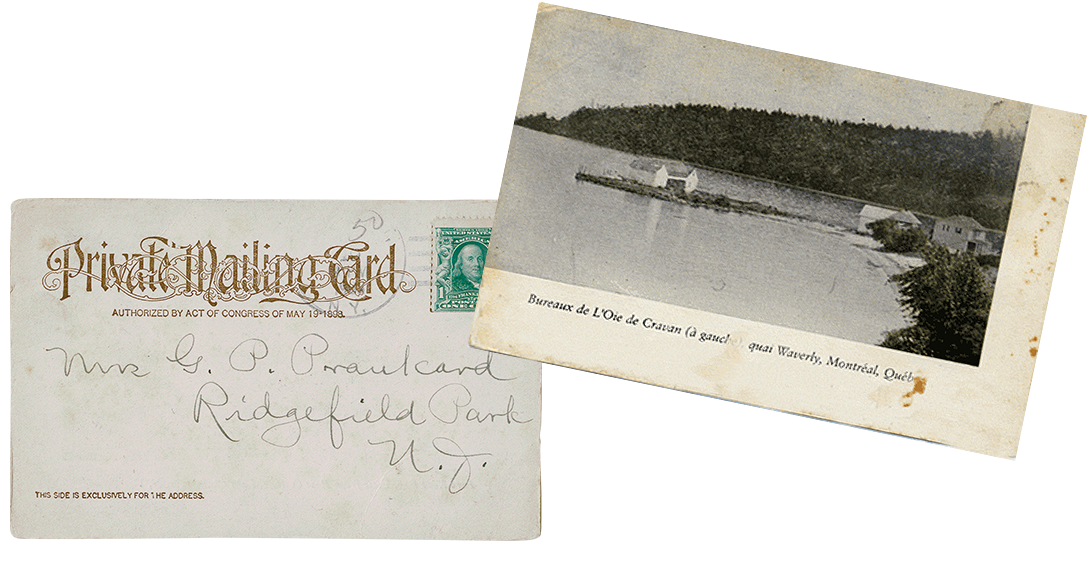 Private Mailing Card
AUTHORIZED BY ACT OF CONGRESS OF MAY 19-1898.
50
N.Y.
UNITED STATES
AMERICA
Mrs G. P. Prankard
Ridgefield Park
N. J.
THIS SIDE IS EXCLUSIVELY FOR THE ADDRESS.
Bureaux de L'Oie de Cravan (à gauche) quai Waverly, Montréal, Québ